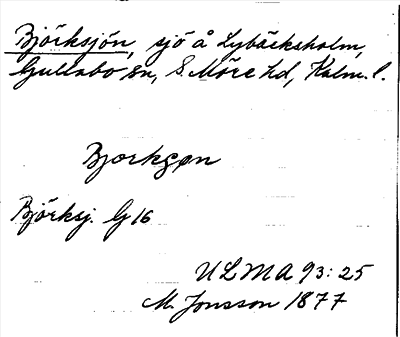 Björksjön, sjö å Lybäcksholm,
Gullabo sn, S. Möre hd, Kalm. l.
Bjorkşøn
Björksj. G 16
ULMA 93:25
M. Jonsson 1877